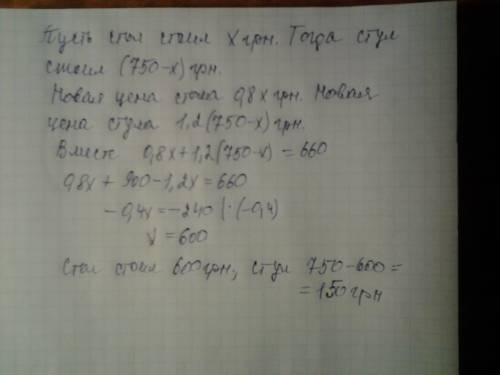 Пусть стол стоил x грн. Тогда стул
стоил (750-x) грн.
Новая цена стола 0,8x грн. Новая
цена стула 1,2(750-x) грн.
Вместе 0,8x+1,2(750-x)=660
0,8x+900-1,2x=660
-0,4x=-240 |:(-0,4)
x=600
Стол стоил 600грн, стул 750-600=
=150грн